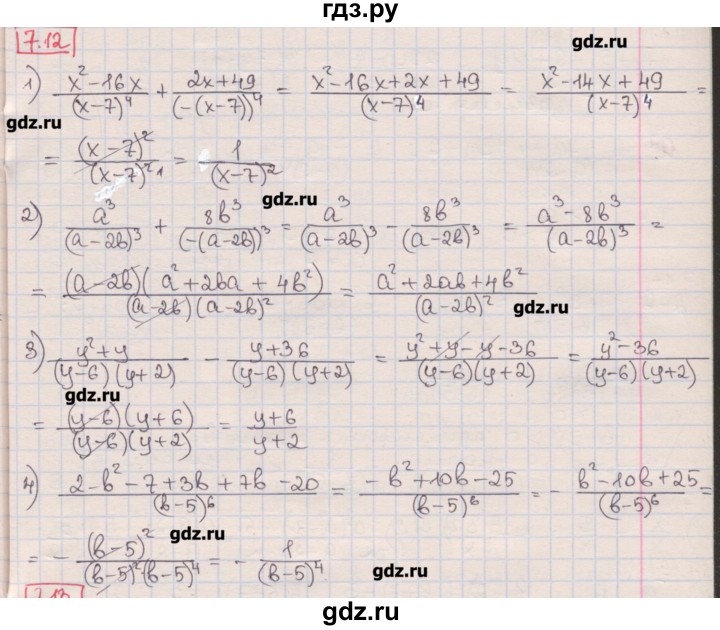 гдз.ру
7.12
gdz.ru
1) (x²-16x)/(x-7)⁴ + (2x+49)/(-(x-7))⁴ = (x²-16x+2x+49)/(x-7)⁴ = (x²-14x+49)/(x-7)⁴ =
gdz.ru
= (x-7)²/(x-7)²⁴ = 1/(x-7)²
gdz.ru
2) a³/(a-2b)³ + 8b³/(-(a-2b))³ = a³/(a-2b)³ - 8b³/(a-2b)³ = (a³-8b³)/(a-2b)³ =
= (a-2b)(a²+2ba+4b²)/(a-2b)(a-2b)² = (a²+2ab+4b²)/(a-2b)²
gdz.ru
3) (y²+y)/(y-6)(y+2) - (y+36)/(y-6)(y+2) = (y²+y-y-36)/(y-6)(y+2) = (y²-36)/(y-6)(y+2)
gdz.ru
= (y-6)(y+6)/(y-6)(y+2) = (y+6)/(y+2)
4) (2-b²-7+3b+7b-20)/(b-5)⁶ = (-b²+10b-25)/(b-5)⁶ = - (b²-10b+25)/(b-5)⁶ =
gdz.ru
= - (b-5)²/(b-5)²(b-5)⁴ = - 1/(b-5)⁴
gdz.ru
7.13
gdz.ru